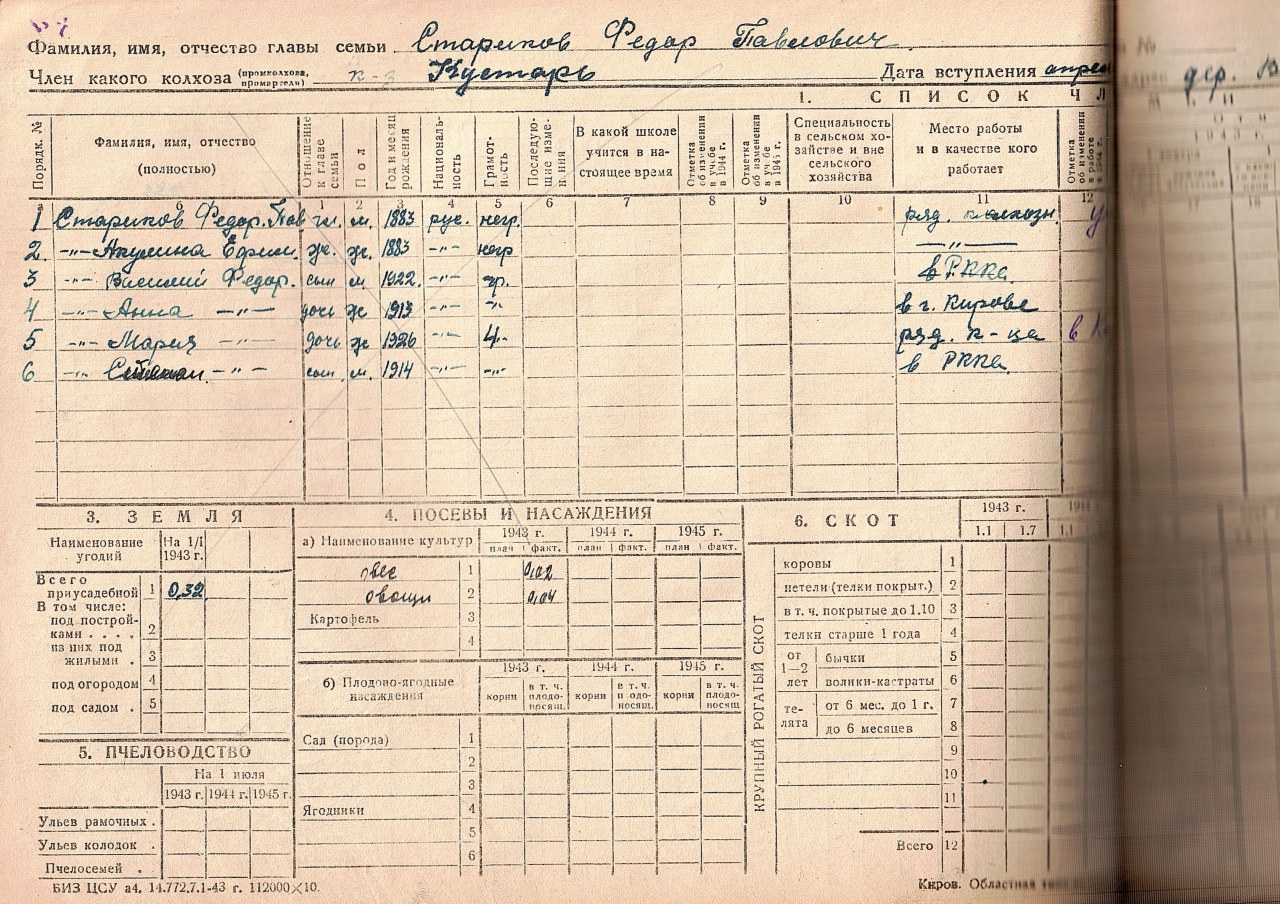 Фамилия, имя, отчество главы семьи Стариков Федор Павлович
Член какого колхоза (промколхоза, промартели) к-з Кустарь Дата вступления апрел
1. СПИСОК ЧЛ
Порядк. № Фамилия, имя, отчество (полностью) Отношение к главе семьи Пол Год и месяц рождения Националь-ность Грамот-ность Последую-щие изме-нения В какой школе учится в на-стоящее время Отметка об изменении в учебе в 1944 г. Отметка об изменении в учебе в 1945 г. Специальность в сельском хо-зяйстве и вне сельского хозяйства Место работы и в качестве кого работает Отметка об изменении в работе
б 1 2 3 4 5 6 7 8 9 10 11 12
1 Стариков Федор. Пав гл. м. 1883 рус. негр. ряд. колхозн.
2. -"- Акулина Ефим. ж. ж. 1883 -"- негр -"-
3 -"- Василий Федор. сын м 1922. -"- гр. в РККА.
4 -"- Анна -"- дочь ж 1913 -"- -"- в г. Кирове
5 -"- Мария -"- дочь ж 1926 -"- 4. ряд. к-ца
6 -"- Степан -"- сын. м. 1914 -"- -"- в РККА
3. ЗЕМЛЯ
Наименование угодий На 1/I 1943 г.
Всего приусадебной 1 0,32
В том числе:
под построй-ками . . . . 2
из них под жилыми . 3
под огородом 4
под садом . 5
5. ПЧЕЛОВОДСТВО
На 1 июля
1943 г. 1944 г. 1945 г.
Ульев рамочных .
Ульев колодок .
Пчелосемей .
4. ПОСЕВЫ И НАСАЖДЕНИЯ
а) Наименование культур 1943 г. 1944 г. 1945 г.
план факт. план факт. план факт.
овес 1 0,02
овощи 2 0,04
Картофель 3
4
б) Плодово-ягодные насаждения 1943 г. 1944 г. 1945 г.
корни в т. ч. плодо-носящ. корни в т. ч. плодо-носящ. корни в т. ч. плодо-носящ
Сад (порода) 1
2
3
Ягодники 4
5
6
6. СКОТ 1943 г.
1.1 1.7 1.1
КРУПНЫЙ РОГАТЫЙ СКОТ
коровы 1
нетели (телки покрыт.) 2
в т. ч. покрытые до 1.10 3
телки старше 1 года 4
от 1—2 лет бычки 5
волики-кастраты 6
те-лята от 6 мес. до 1 г. 7
до 6 месяцев 8
9
10
11
Всего 12
БИЗ ЦСУ а4. 14.772.7.1-43 г. 112000×10.
Киров. Областная
№
дер.
17 18